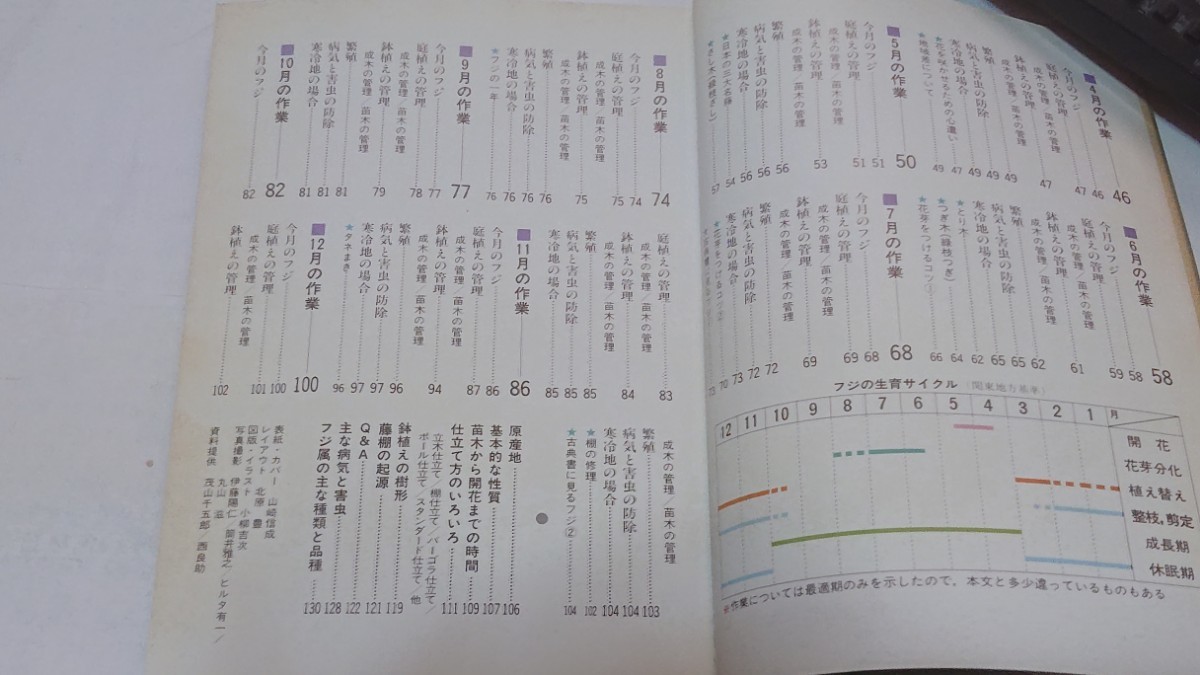 ■4月の作業 46
今月のフジ 46
庭植えの管理 47
成木の管理/苗木の管理
鉢植えの管理 47
成木の管理/苗木の管理
繁殖 49
病気と害虫の防除 49
寒冷地の場合 49
★花を咲かせるための心遣い 47
★地域差について 49
■5月の作業 50
今月のフジ 51
庭植えの管理 51
成木の管理/苗木の管理
鉢植えの管理 53
成木の管理/苗木の管理
繁殖 56
病気と害虫の防除 56
寒冷地の場合 56
★日本の三大名藤 54
★さし木(緑枝ざし) 57
■6月の作業 58
今月のフジ 58
庭植えの管理 59
成木の管理/苗木の管理 61
鉢植えの管理
成木の管理/苗木の管理 62
繁殖 65
病気と害虫の防除 65
寒冷地の場合 65
★とり木 62
★つぎ木(緑枝つぎ) 64
★花芽をつけるコツ① 66
■7月の作業 68
今月のフジ 68
庭植えの管理 69
成木の管理/苗木の管理
鉢植えの管理 69
成木の管理/苗木の管理
繁殖 72
病気と害虫の防除 72
寒冷地の場合 73
★花芽をつけるコツ② 70
フジの生育サイクル(関東地方基準)
12 11 10 9 8 7 6 5 4 3 2 1 月
開花
花芽分化
植え替え
整枝,剪定
成長期
休眠期
※作業については最適期のみを示したので,本文と多少違っているものもある
■8月の作業 74
今月のフジ 74
庭植えの管理 75
成木の管理/苗木の管理
鉢植えの管理 75
成木の管理/苗木の管理
繁殖 76
病気と害虫の防除 76
寒冷地の場合 76
★フジの一年 76
■9月の作業 77
今月のフジ 77
庭植えの管理 78
成木の管理/苗木の管理
鉢植えの管理 79
成木の管理/苗木の管理
繁殖 81
病気と害虫の防除 81
寒冷地の場合 81
■10月の作業 82
今月のフジ 82
庭植えの管理 83
成木の管理/苗木の管理
鉢植えの管理 84
成木の管理/苗木の管理
繁殖 85
病気と害虫の防除 85
寒冷地の場合 85
■11月の作業 86
今月のフジ 86
庭植えの管理 87
成木の管理/苗木の管理
鉢植えの管理 94
成木の管理/苗木の管理
繁殖 96
病気と害虫の防除 97
寒冷地の場合 97
★タネまき 96
■12月の作業 100
今月のフジ 100
庭植えの管理 101
成木の管理/苗木の管理
鉢植えの管理 102
成木の管理/苗木の管理
繁殖 103
病気と害虫の防除 104
寒冷地の場合 104
★棚の修理 102
★古典書に見るフジ② 104
●
原産地 106
基本的な性質 107
苗木から開花までの時間 109
仕立て方のいろいろ 111
立木仕立て/棚仕立て/パーゴラ仕立て/
ポール仕立て/スタンダード仕立て/他
鉢植えの樹形 119
藤棚の起源 121
Q&A 122
主な病気と害虫 128
フジ属の主な種類と品種 130
表紙・カバー 山崎信成
レイアウト 北原 豊
図版・イラスト 小柳吉次
写真撮影 伊藤陽仁/筒井雅之/ヒルタ有一/
丸山 滋
資料提供 茂山千五郎/西良助